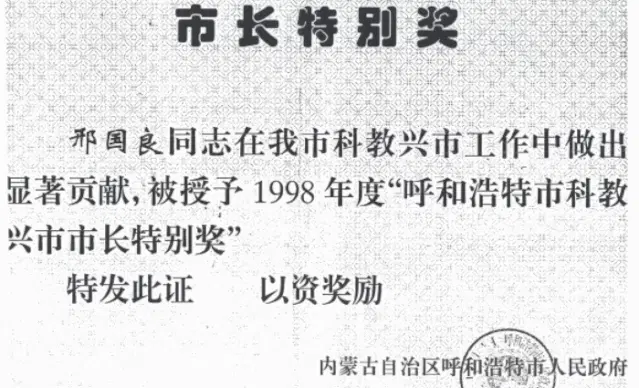 市长特别奖
邢国良同志在我市科教兴市工作中做出
显著贡献,被授予1998年度“呼和浩特市科教
兴市市长特别奖”
特发此证 以资奖励
内蒙古自治区呼和浩特市人民政府